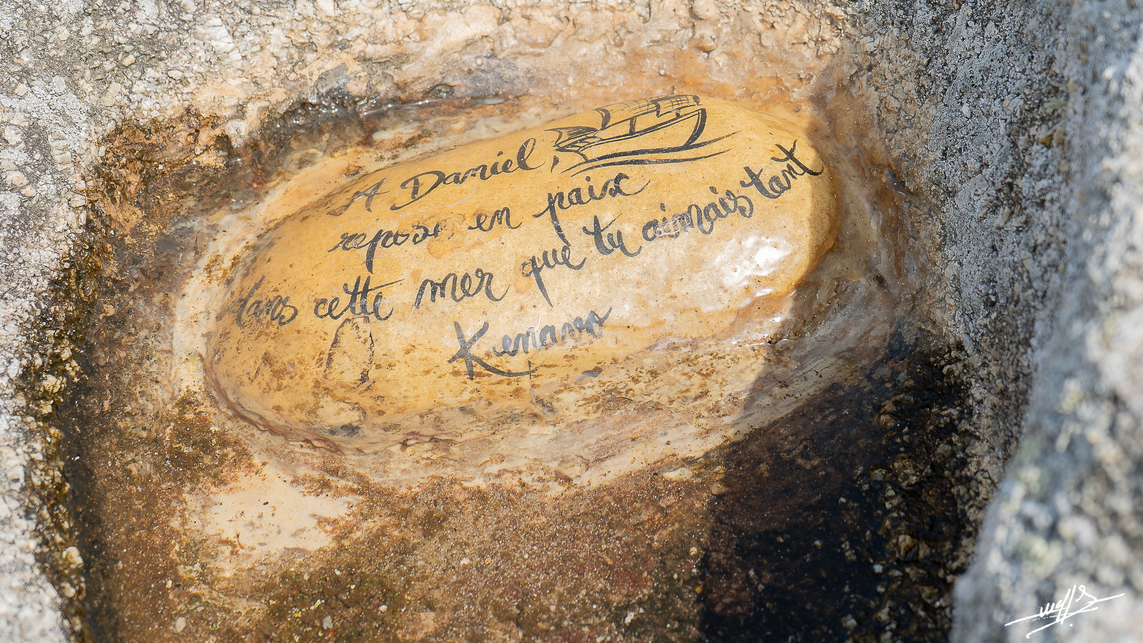 A Daniel,
repose en paix
dans cette mer que tu aimais tant